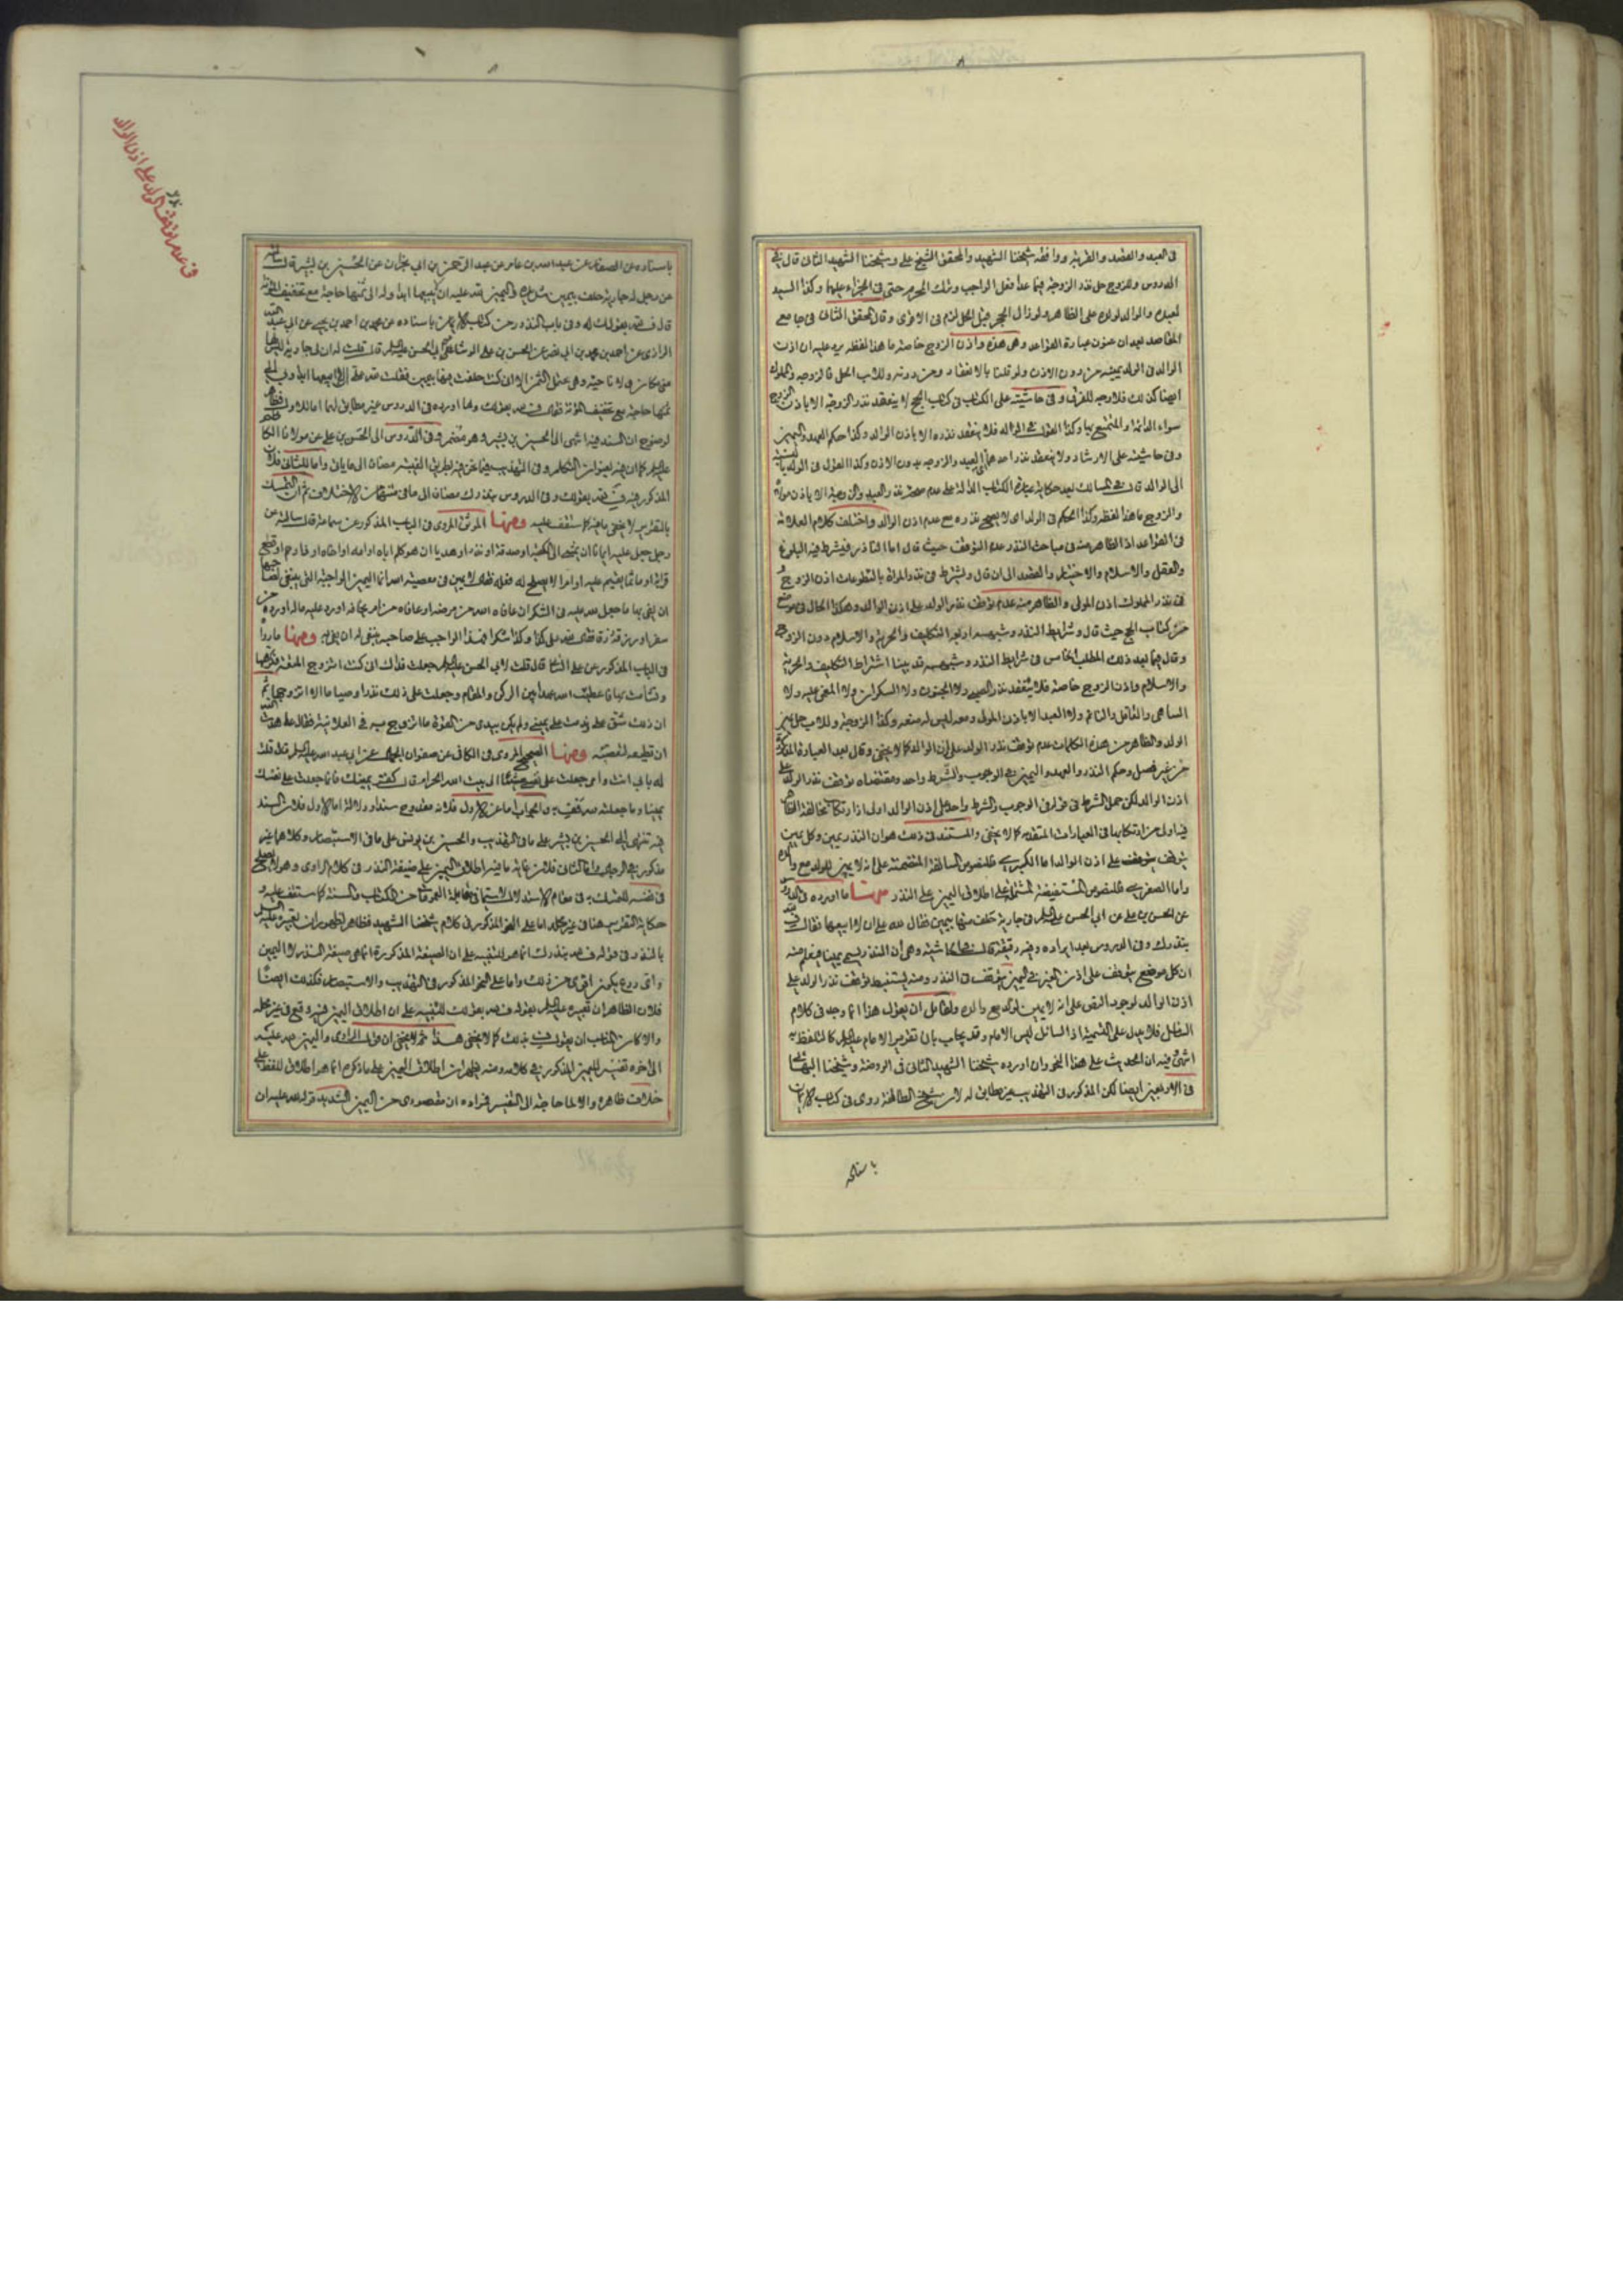 في العبد والعقيد والقربة ووافقه شيخنا الشهيد والمحقق الشيخ علي وشيخنا الشهيد الثاني قال في
الدروس وللزوج حل نذر الزوجة فيما عدا فعل الواجب وترك المحرم حتى في الجزاء عليهما وكذا السيد
لعبده والوالد لولده على الظاهر ولو زال الحجر قبل الحل لزم في الاقوى وقال المحقق الثاني في جامع
المقاصد بعد ان عنون عبارة القواعد وهي هذه واذن الزوج خاصة ما هذا لفظه يرد عليه ان اذن
الوالد في الولد يمينه من دون الاذن ولو قلنا بالانعقاد من دونه وللاب الحل فالزوجة والمملوك
ايضا كذلك فلا وجه للفرق وفي حاشيته على الكتاب في كتاب الحج لا ينعقد نذر الزوجة الا باذن الزوج
سواء الدائم والمتمتع بها وكذا القول في الولد فلا ينعقد نذره الا باذن الوالد وكذا حكم العهد واليمين
وفي حاشيته على الارشاد ولا ينعقد نذر احد من العبد والزوجة بدون الاذن وكذا القول في الولد بالنسبة
الى الوالد قال في المسالك بعد حكاية عبارة الكتاب الدالة على عدم صحة نذر العبد والزوجة الا باذن مولاه
والزوج ما هذا لفظه وكذا الحكم في الولد اي لا يصح نذره مع عدم اذن الوالد واختلف كلام العلامة
في القواعد اذ الظاهر منه في مباحث النذر عدم التوقف حيث قال اما الناذر فيشرط فيه البلوغ
والعقل والاسلام والاختيار والقصد الى ان قال ويشترط في نذر المراة بالتطوعات اذن الزوج و
في نذر المملوك اذن المولى والظاهر منه عدم توقف نذر الولد على اذن الوالد وهكذا الحال في موضع
من كتاب الحج حيث قال وشرايط النذر وشبهه اربعة التكليف والحرية والاسلام واذن الزوج
وقال فيما بعد ذلك المطلب الخامس في شرايط النذر وشبهه قد بينا اشتراط التكليف والحرية
والاسلام واذن الزوج خاصة فلا ينعقد نذر الصبي ولا المجنون ولا السكران ولا المغمى عليه ولا
الساهي والغافل والنائم ولا العبد الا باذن المولى ومعه ليس له منعه وكذا الزوجة وللاب حل يمين
الولد والظاهر من هذه الكلمات عدم توقف نذر الولد على اذن الوالد كما لا يخفى وقال بعد العبارة المذكورة
من غير فصل وحكم النذر والعهد واليمين في الوجوب والشرط واحد ومقتضاه توقف نذر الولد على
اذن الوالد لكن حمل الشرط في قوله في الوجوب والشرط واحد على اذن الوالد اولى اذ ارتكاب مخالفة الظاهر
فيه اولى من ارتكابها في العبارات المتقدمة كما لا يخفى والمستند في ذلك هو ان النذر يمين وكل يمين
يتوقف على اذن الوالد اما الكبرى فللنصوص السالفة المتضمنة على انه لا يمين للولد مع والده
واما الصغرى فللنصوص المستفيضة المشتملة على اطلاق اليمين على النذر منها ما اورده في الدروس
عن الحسن بن علي عن ابي الحسن عليه السلام في جارية حلف منها بيمين فقال لله علي ان لا ابيعها فقال ف لله
بنذرك وفي الدروس بعد ايراده وفيه دقيقة قال في الحاشية وهي ان النذر يسمى يمينا فيعلم منه
ان كل موضع يتوقف على اذن الغير في اليمين يتوقف في النذر ومنه يستنبط توقف نذر الولد على
اذن الوالد لوجود النص على انه لا يمين لولد مع والده ولقائل ان يقول هذا انما وجد في كلام
السائل فلا يدل على التسمية اذ السائل ليس الامام وقد يجاب بان تقرير الامام عليه السلام كالتلفظ به
انتهى فيه ان الحديث على هذا النحو وان اورده شيخنا الشهيد الثاني في الروضة وشيخنا البهائي
في الاربعين ايضا لكن المذكور في التهذيب غير مطابق له لان شيخ الطائفة روى في كتاب الايمان
باسناده
باسناده عن الصفار عن عبد الله بن عامر عن عبد الرحمن بن ابي نجران عن الحسين بن بشير قال سألته
عن رجل له جارية حلف بيمين شديدة واليمين لله عليه ان لا يبيعها ابدا وله الى ثمنها حاجة مع تخفيف المؤنة
قال ف لله بقولك له وفي باب النذور من كتاب الايمان باسناده عن محمد بن احمد بن يحيى عن ابي عبد الله
الرازي عن احمد بن محمد بن ابي نصر عن الحسن بن علي الوشاء عن ابي الحسن عليه السلام قال قلت له ان لي جارية ليس لها
مني مكان ولا ناحية وهي تحتمل الثمن الا اني كنت حلفت فيها بيمين فقلت لله علي ان لا ابيعها ابدا ولي الى
ثمنها حاجة مع تخفيف المؤنة فقال ف لله بقولك وما اورده في الدروس غير مطابق لهما اما الاول فظاهر
لوضوح ان السند فيه انتهى الى الحسين بن بشير وهو مضمر وفي الدروس الى الحسن بن علي عن مولانا الكاظم
المذكور فيه ف لله بقولك وفي الدروس بنذرك مضافا الى ما في متنهما من الاختلاف ثم ان التمسك
بالتقرير لا يخفى ما فيه كما ستقف عليه ومنها الموثق المروي في الباب المذكور عن سماعة قال سألته عن
رجل جعل عليه ايمانا ان يمشي الى الكعبة او صدقة او نذر او هديا ان هو كلم اباه او امه او اخاه او ذا رحم او قطع
قرابة او مأثما يقيم عليه او امرا لا يصلح له فعله فقال لا يمين في معصية الله انما اليمين الواجبة التي ينبغي لصاحبها
ان يفي بها ما جعل لله عليه في الشكر ان عافاه الله من مرضه او عافاه من امر يخافه او رد عليه ماله او رده من
سفر او رزقه رزقا فقال لله علي كذا وكذا شكرا فهذا الواجب على صاحبه ينبغي له ان يفي به ومنها ما رواه
في الباب المذكور عن علي السائي قال قلت لابي الحسن عليه السلام جعلت فداك اني كنت اتزوج المتعة فكرهتها
وتشأمت بها فاعطيت الله عهدا بين الركن والمقام وجعلت علي في ذلك نذرا وصياما الا اتزوجها ثم
ان ذلك شق علي وندمت على يميني ولم يكن بيدي من القوة ما اتزوج به في العلانية فقال عاهدت الله
ان تطيعه لتعصيه ومنها الصحيح المروي في الكافي عن صفوان الجمال عن ابي عبد الله عليه السلام قال قلت
له بابي انت وامي جعلت على نفسي مشيا الى بيت الله الحرام قال كفر يمينك فانما جعلت على نفسك
يمينا وما جعلته لله فف به والجواب اما عن الاول فلانه مقدوح سندا ودلالة اما الاول فلان السند
فيه تنتهي الى الحسين بن بشير على ما في التهذيب والحسين بن يونس على ما في الاستبصار وكلاهما غير
مذكور في الرجال واما الثاني فلان غاية ما فيه اطلاق اليمين على صيغة النذر في كلام الراوي وهو لا يصلح
في نفسه للتمسك به في مقام الاستدلال لا سيما في مقابلة العمومات من الكتاب والسنة كما ستقف عليه و
حكاية التقرير هنا في غير محله اما على النحو المذكور في كلام شيخنا الشهيد فظاهر لظهور ان تعبيره عليه السلام
بالنذر في قوله ف لله بنذرك انما هو للتنبيه على ان الصيغة المذكورة انما هي صيغة النذر لا اليمين
واي ردع يكون اقوى من ذلك واما على النحو المذكور في التهذيب والاستبصار فكذلك ايضا
فلان الظاهر ان تعبيره عليه السلام بقوله ف لله بقولك للتنبيه على ان اطلاق اليمين فيه وقع في غير محله
والا كان المناسب ان يقول ف لله بذلك كما لا يخفى هذا ثم لا يخفى ان قول الراوي واليمين لله عليه
الى اخره تفسير لليمين المذكور في كلامه ومنه يظهر ان اطلاق اليمين على ما ذكره انما هو اطلاق للفظ على
خلاف ظاهره والا لما حاجة الى التفسير فمراده ان مقصودي من اليمين الشديد قوله لله عليه ان
في عدم توقف نذر الولد على اذن الوالد